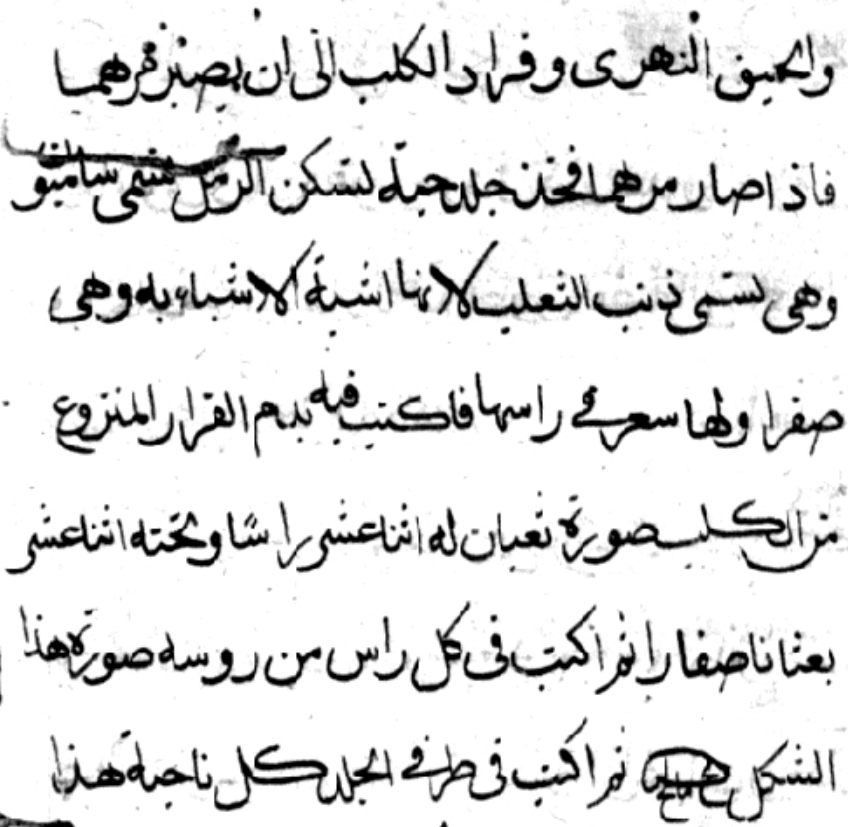 والحبق النهرى وقراد الكلب الى ان يصير مرهما
فاذا صار مرهما فخذ جلد حية تسكن الرمل تسمى
وهى تسمى ذنب الثعلب لانها اشبة الاشياء به وهى
صفرا ولها سعر فى راسها فاكتب فيه بدم القرار المنزوع
من الكلب صورة ثعبان له اثنا عشر راسا وتحته اثنا عشر
بعثانا صغارا ثم اكتب فى كل راس من روسه صورة هذا
الشكل ثم اكتب فى طرفى الجلد كل ناحية هذا